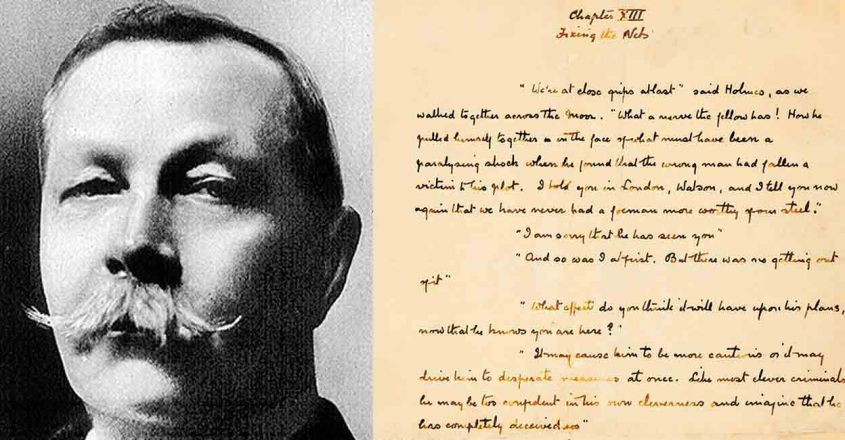 Chapter XIII
Fixing the Nets
"We're at close grips at last" said Holmes, as we
walked together across the Moor. "What a nerve the fellow has! How he
pulled himself together in the face of what must have been a
paralysing shock when he found that the wrong man had fallen a
victim to his plot. I told you in London, Watson, and I tell you now
again that we have never had a foeman more worthy of our steel."
"I am sorry that he has seen you"
"And so was I at first. But there was no getting out
of it"
"What effect do you think it will have upon his plans,
now that he knows you are here?"
"It may cause him to be more cautious or it may
drive him to desperate measures at once. Like most clever criminals
he may be too confident in his own cleverness and imagine that he
has completely deceived us"